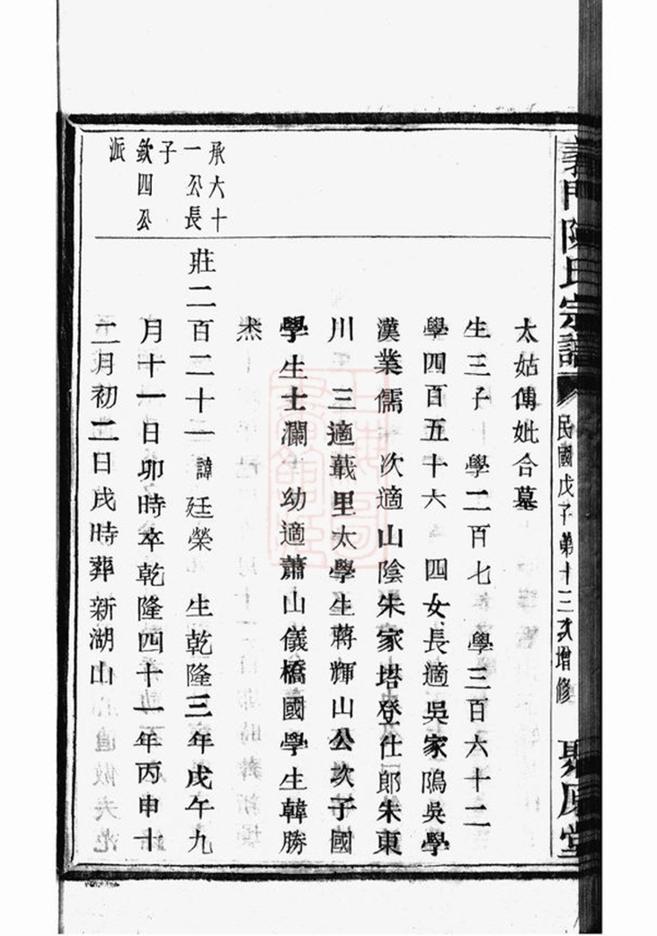 義門陳氏宗譜 民國戊子第十三次增修 聚原堂
太姑傅妣合墓
生三子 學二百七 學三百六十二
學四百五十六 四女長適吳家隝吳學
漢業儒 次適山陰朱家塔登仕郎朱東
川 三適蕺里太學生蔣輝山公次子國
學生士瀾 幼適蕭山儀橋國學生韓勝
承六十
一公長
子
欽四公
派
莊二百二十一諱廷榮 生乾隆三年戊午九
月十一日卯時卒乾隆四十一年丙申十
二月初二日戌時葬新湖山